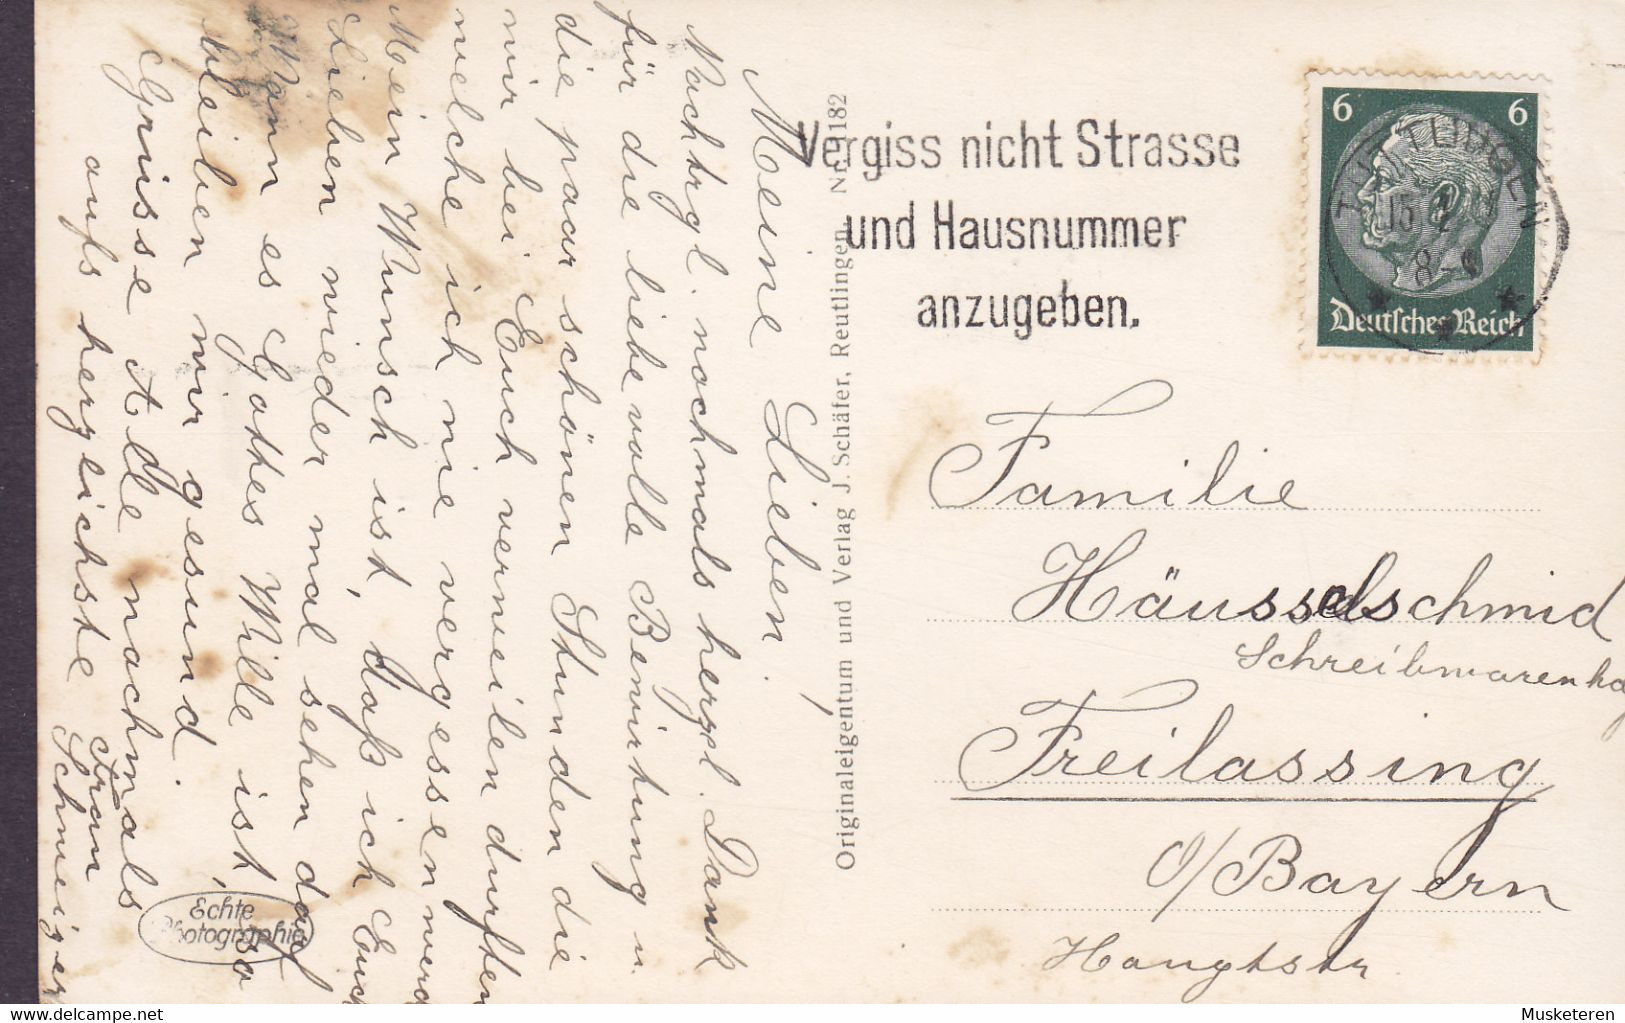 Meine Lieben.
Nachtrgl. nochmals herzl. Dank
für die liebevolle Bewirtung u.
die paar schönen Stunden die
mir bei Euch verweilen durften
welche ich nie vergessen werd
Mein Wunsch ist, daß ich Euch
Lieben wieder mal sehen darf
Wann es Gottes Wille ist, so
bleiben wir gesund.
Grüsse Alle nachmals
aufs herzlichste Frau
Schweizer
Echte
Photographie
Originaleigentum und Verlag J. Schäfer, Reutlingen. Nr. 1182
Vergiss nicht Strasse
und Hausnummer
anzugeben.
6 6
Deutsches Reich
TUTTLINGEN
15
8-9
Familie
Häusselschmid
Schreibwarenha
Freilassing
O/Bayern
Hauptstr
Musketeren